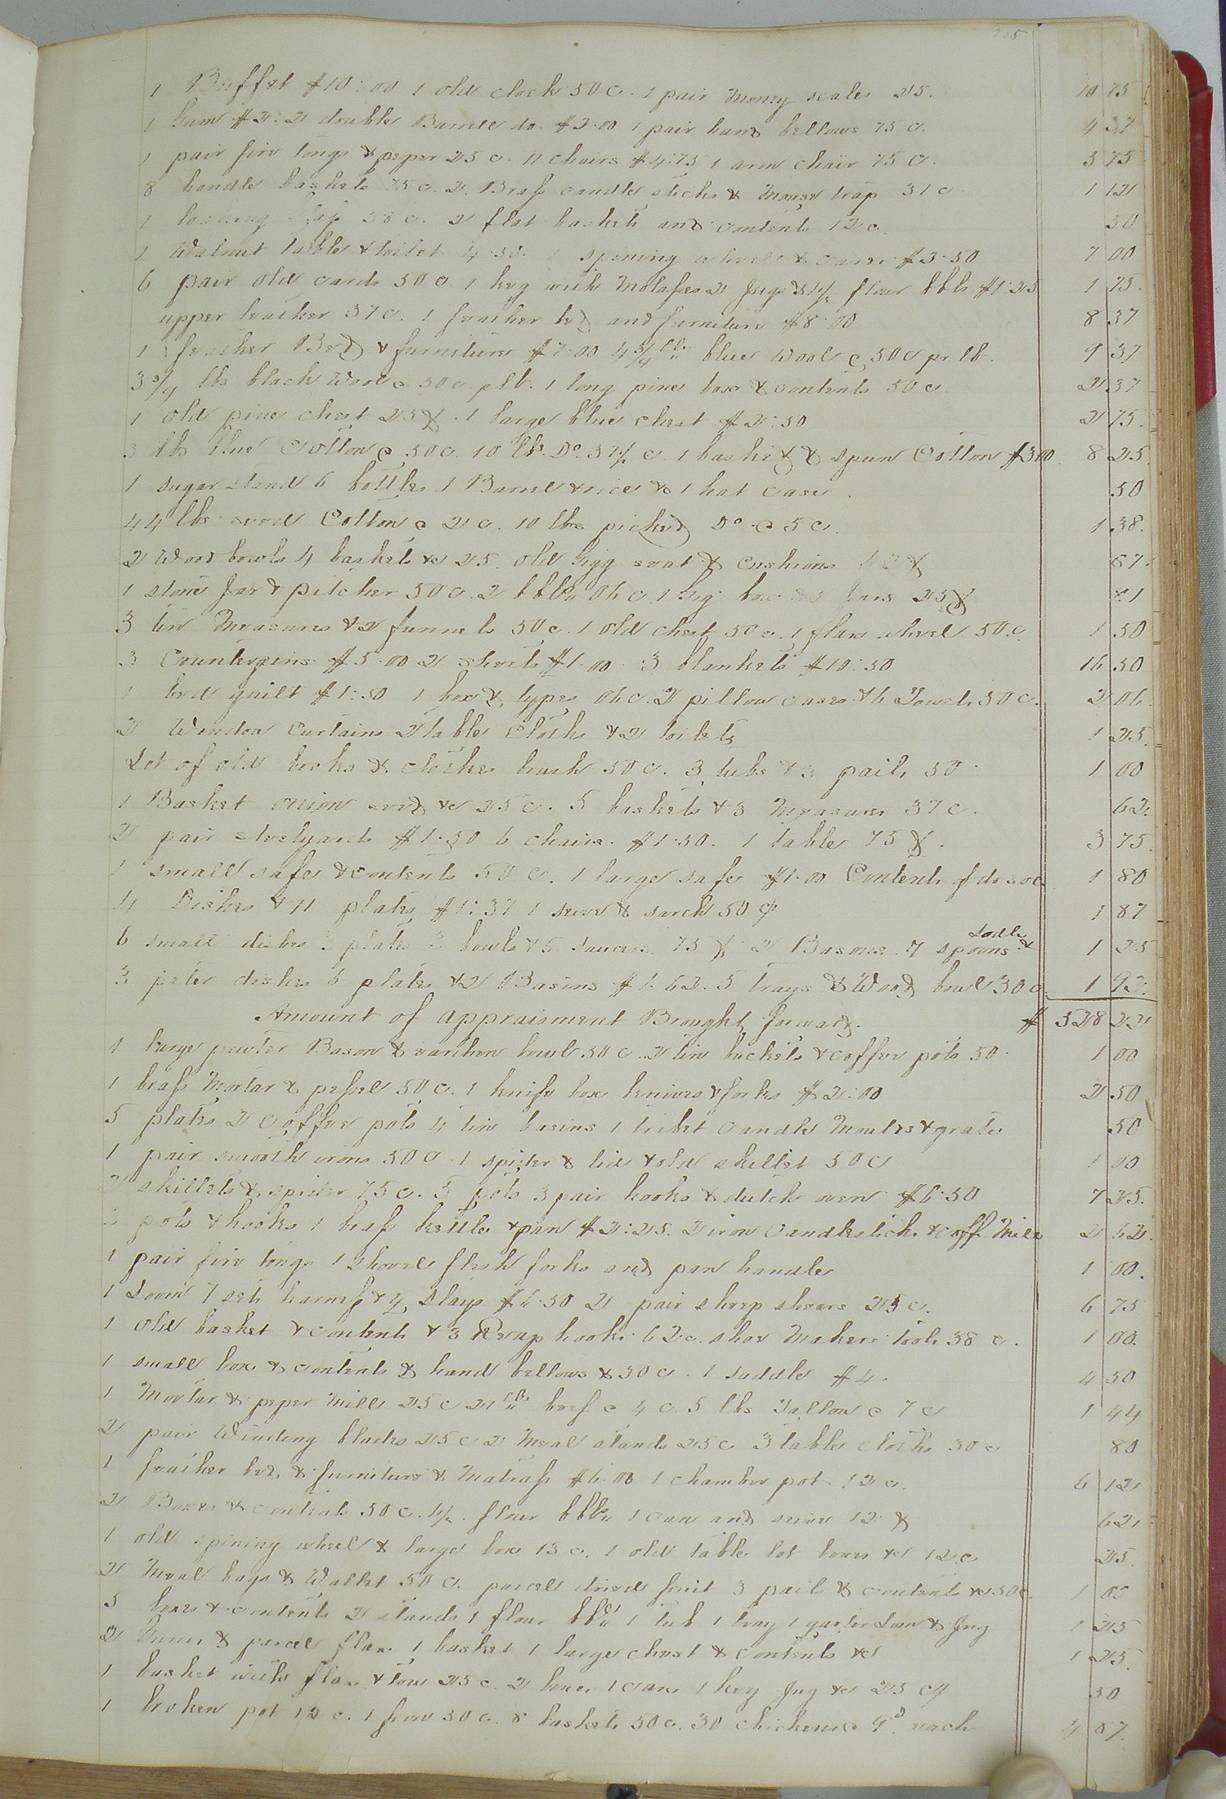 205
1 Buffet $10.00 1 old clock 50 c. 1 pair money scales 25. 10 75
1 $2. 2 double Barrell do $2.00 1 pair hand bellows 75 c. 4 37
1 pair fire tongs & peper 25 c. 11 chairs $4.75 1 arm chair 75 c. 5 75
8 handle baskets 75 c. 2 Brass candle sticks & mouse trap 37 c 1 12
1 looking 38 c. 2 flat baskets and contents 12 c. 50
1 Walnut table & toilet 4.50. 1 spining wheel & cards $2.50 7 00
6 pair old cards 50 c 1 keg with Molasses 2 Jugs & 1½ flour bbls $1.25 1 75.
upper leather 37 c. 1 feather bed and furniture $8.00 8 37
1 feather Bed & furniture $7.00 4¾ lbs blue wool @ 50 c pr lb. 9 37
3¾ lbs black Wool @ 50 c plb. 1 long pine box & contents 50 c 2 37
1 old pine chest 25 ₡ 1 large blue chest $2.50 2 75.
3 lbs blue Cotton @ 50 c. 10 lbs Do. 37½ c 1 basket & spun Cotton $3.00 8 25.
1 sugar stand 6 bottles 1 Barrel & rice & 1 hat case. 50
44 lbs seed Cotton @ 2 c. 10 lbs picked Do @ 5 c. 1 38.
2 Wood bowls 4 baskets &c 25. old Gigg seat & cushions 42 ₡ 67.
1 stone Jar & pitcher 50 c. 2 bbls 06 c 1 box Jars 25 ₡ 81
3 tin Measures & 2 funnels 50 c. 1 old chest 50 c. 1 flax wheel 50 c. 1 50
3 Counterpins $5.00 2 sheets $1.00. 3 blankets $10.50 16 50
1 bed quilt $1.50 1 box & types 06 c. 2 pillow cases & 6 Towels 50 c. 2 06.
2 Window Curtains 2 table Cloths & 2 toilets 1 25.
Lot of old books & clothes brush 50 c. 3 tubs & 3 pails 50. 1 00
1 Basket onion seed &c 25 c. 5 baskets & 3 Measures 37 c. 62.
2 pair steelyards $1.50 6 chairs. $1.50. 1 table 75 ₡. 3 75.
1 small safe & contents 50 c. 1 large safe $1.00 Contents of do 30 c 1 80
4 Dishes & 11 plates $1.37 1 sieve & sarch 50 c 1 87
6 small dishes plates bowls & 5 saucers. 75 ₡ 2 Basons 7 spoons ladle & 1 25
3 peter dishes 6 plates & 2 Basins $1.62. 5 trays & Wood bowl 30 c. 1 92.
Amount of appraisment Brought forward. $ 528 22
1 large pewter Bason & earthen bowl 50 c. 2 tin buckets & coffee pots 50. 1 00
1 brass Mortar & pessel 50 c. 1 knife box knives & forks $2.00 2 50
5 plates 2 coffee pots 4 tin basins 1 trivet candle moulds & grater 50
1 pair smooth irons 50 c 1 spider & lid & old skillet 50 c 1 00
skillets & spider 75 c. 5 pots 3 pair hooks & dutch oven $6.50 7 25.
2 pots & hooks 1 brass kettle & pan $2.25. 2 iron Candlestick & coff Mill 2 62.
1 pair fire tongs 1 shovel flesh forks and pan handles 1 00.
1 Loom 7 sets harness & 7 Slays $6.50 2 pair sheep shears 25 c. 6 75
1 old basket & contents & 3 Reap hooks 62 c. shoe Makers tools 38 c. 1 00.
1 small box & contents & hand bellows & 50 c. 1 saddle $4. 4 50
1 Mortar & peper Mill 25 c 21 lbs beef @ 4 c 5 lbs Tallow @ 7 c 1 44
2 pair Winding blades 25 c 2 Meal stands 25 c 3 table cloths 30 c 80
1 feather bed & furniture & Matrass $6.00 1 chamber pot 12 c. 6 12
2 Boxes & contents 50 c. 4½ flour bbls 1 can and sieve 12 ₡ 62
1 old spining wheel & large box 13 c. 1 old table lot boxes &c 12 c 25.
2 Meal bags & Wallet 50 c. parcel dried fruit 3 pails & contents &c 50 c. 1 00
5 boxes & contents 2 stands 1 flour bbl 1 tub 1 tray 1 garter Loom & Jug 1 25
2 & parcel flax 1 basket 1 large chest & contents &c 1 25.
1 basket with flax & tow 25 c. 2 boxes 1 case 1 keg Jug &c 25 c 50
1 broken pot 12 c. 1 50 c. 8 baskets 50 c. 30 chickens @ 9d. each 4 87.